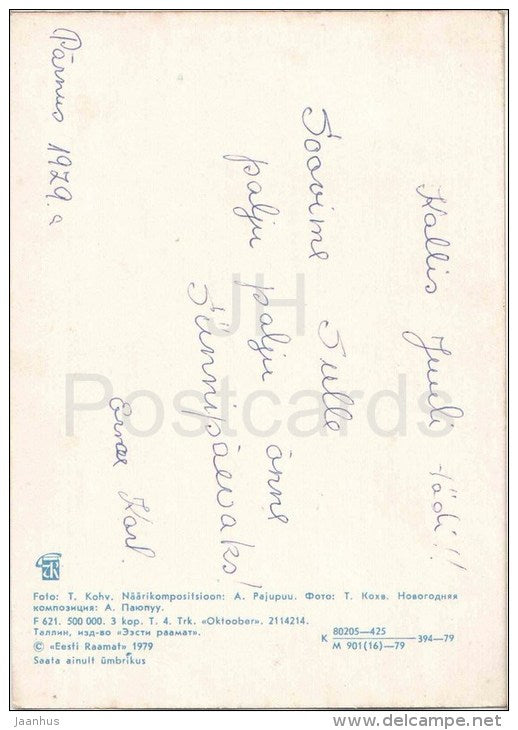 Kallis Juuli-tädi!!
Soovime Sulle
palju palju õnne
Sünnipäevaks!
Karl
Pärnus 1979. a
JH
Postcards
Foto: T. Kohv. Näärikompositsioon: A. Pajupuu. Фото: Т. Кохв. Новогодняя
композиция: А. Паюпуу.
F 621. 500 000. 3 kop. T. 4. Trk. «Oktoober». 2114214.
Таллин, изд-во «Ээсти раамат».
K 80205—425 394—79
M 901(16)—79
© «Eesti Raamat» 1979
Saata ainult ümbrikus
Jaanhus
www.delcampe.net